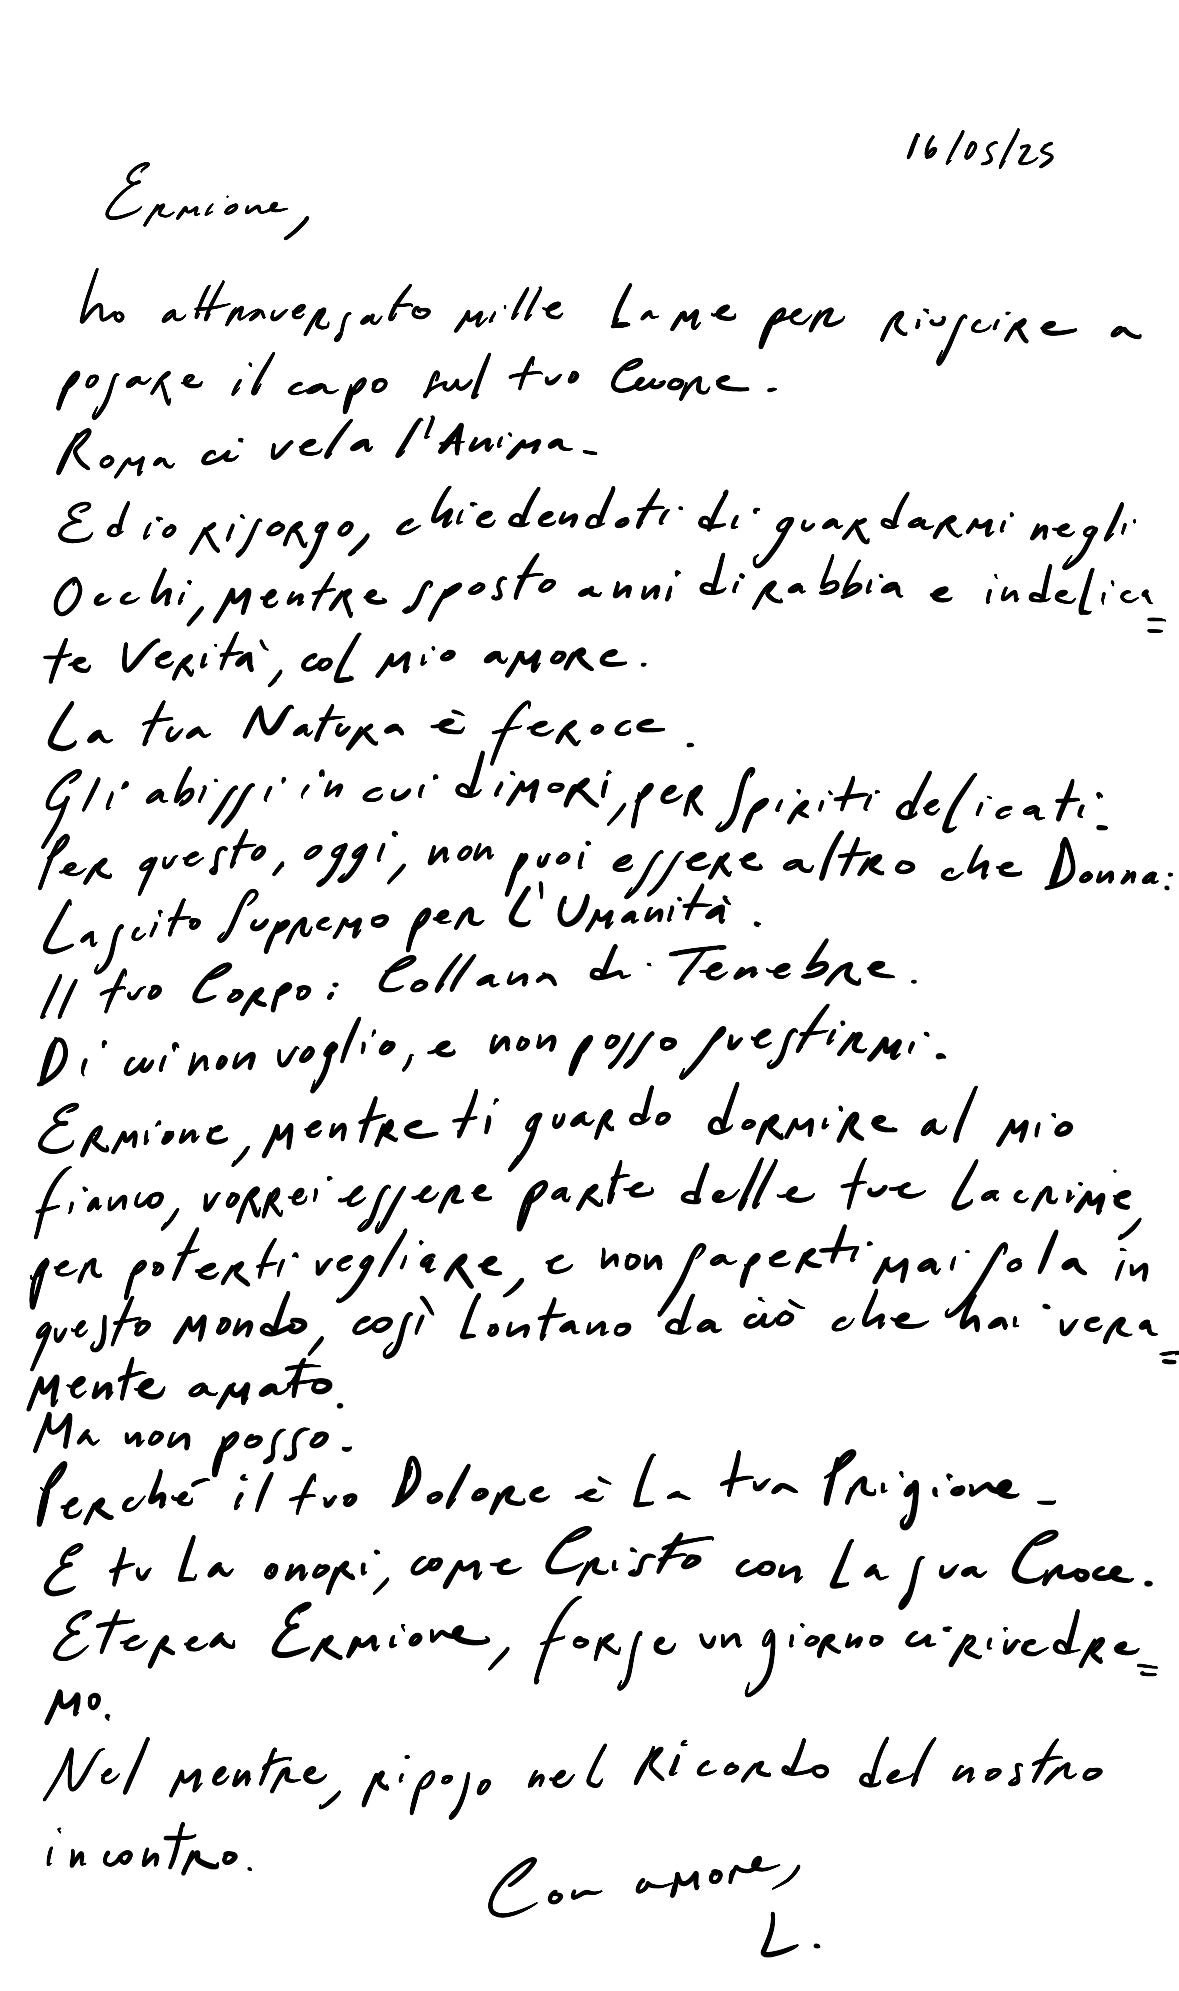 16/05/25
Ermione,
ho attraversato mille Lame per riuscire a
posare il capo sul tuo Cuore.
Roma ci vela l'Anima.
Ed io risorgo, chiedendoti di guardarmi negli
Occhi, mentre sposto anni di rabbia e indelica=
te Verità, col mio amore.
La tua Natura è feroce.
Gli abissi in cui dimori, per Spiriti delicati.
Per questo, oggi, non puoi essere altro che Donna:
Lascito Supremo per L'Umanità.
Il tuo Corpo: Collana di Tenebre.
Di cui non voglio, e non posso svestirmi.
Ermione, mentre ti guardo dormire al mio
fianco, vorrei essere parte delle tue Lacrime,
per poterti vegliare, e non saperti mai sola in
questo mondo, così Lontano da ciò che hai vera=
mente amato.
Ma non posso.
Perché il tuo Dolore è La tua Prigione.
E tu La onori, come Cristo con La sua Croce.
Eterea Ermione, forse un giorno ci rivedre=
mo.
Nel mentre, riposo nel Ricordo del nostro
incontro.
Con amore,
L.